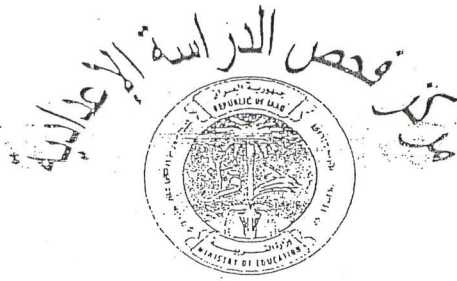 مركز فحص الدراسة الإعدادية
جمهورية العراق
REPUBLIC OF IRAQ
وزارة التربية
MINISTRY OF EDUCATION